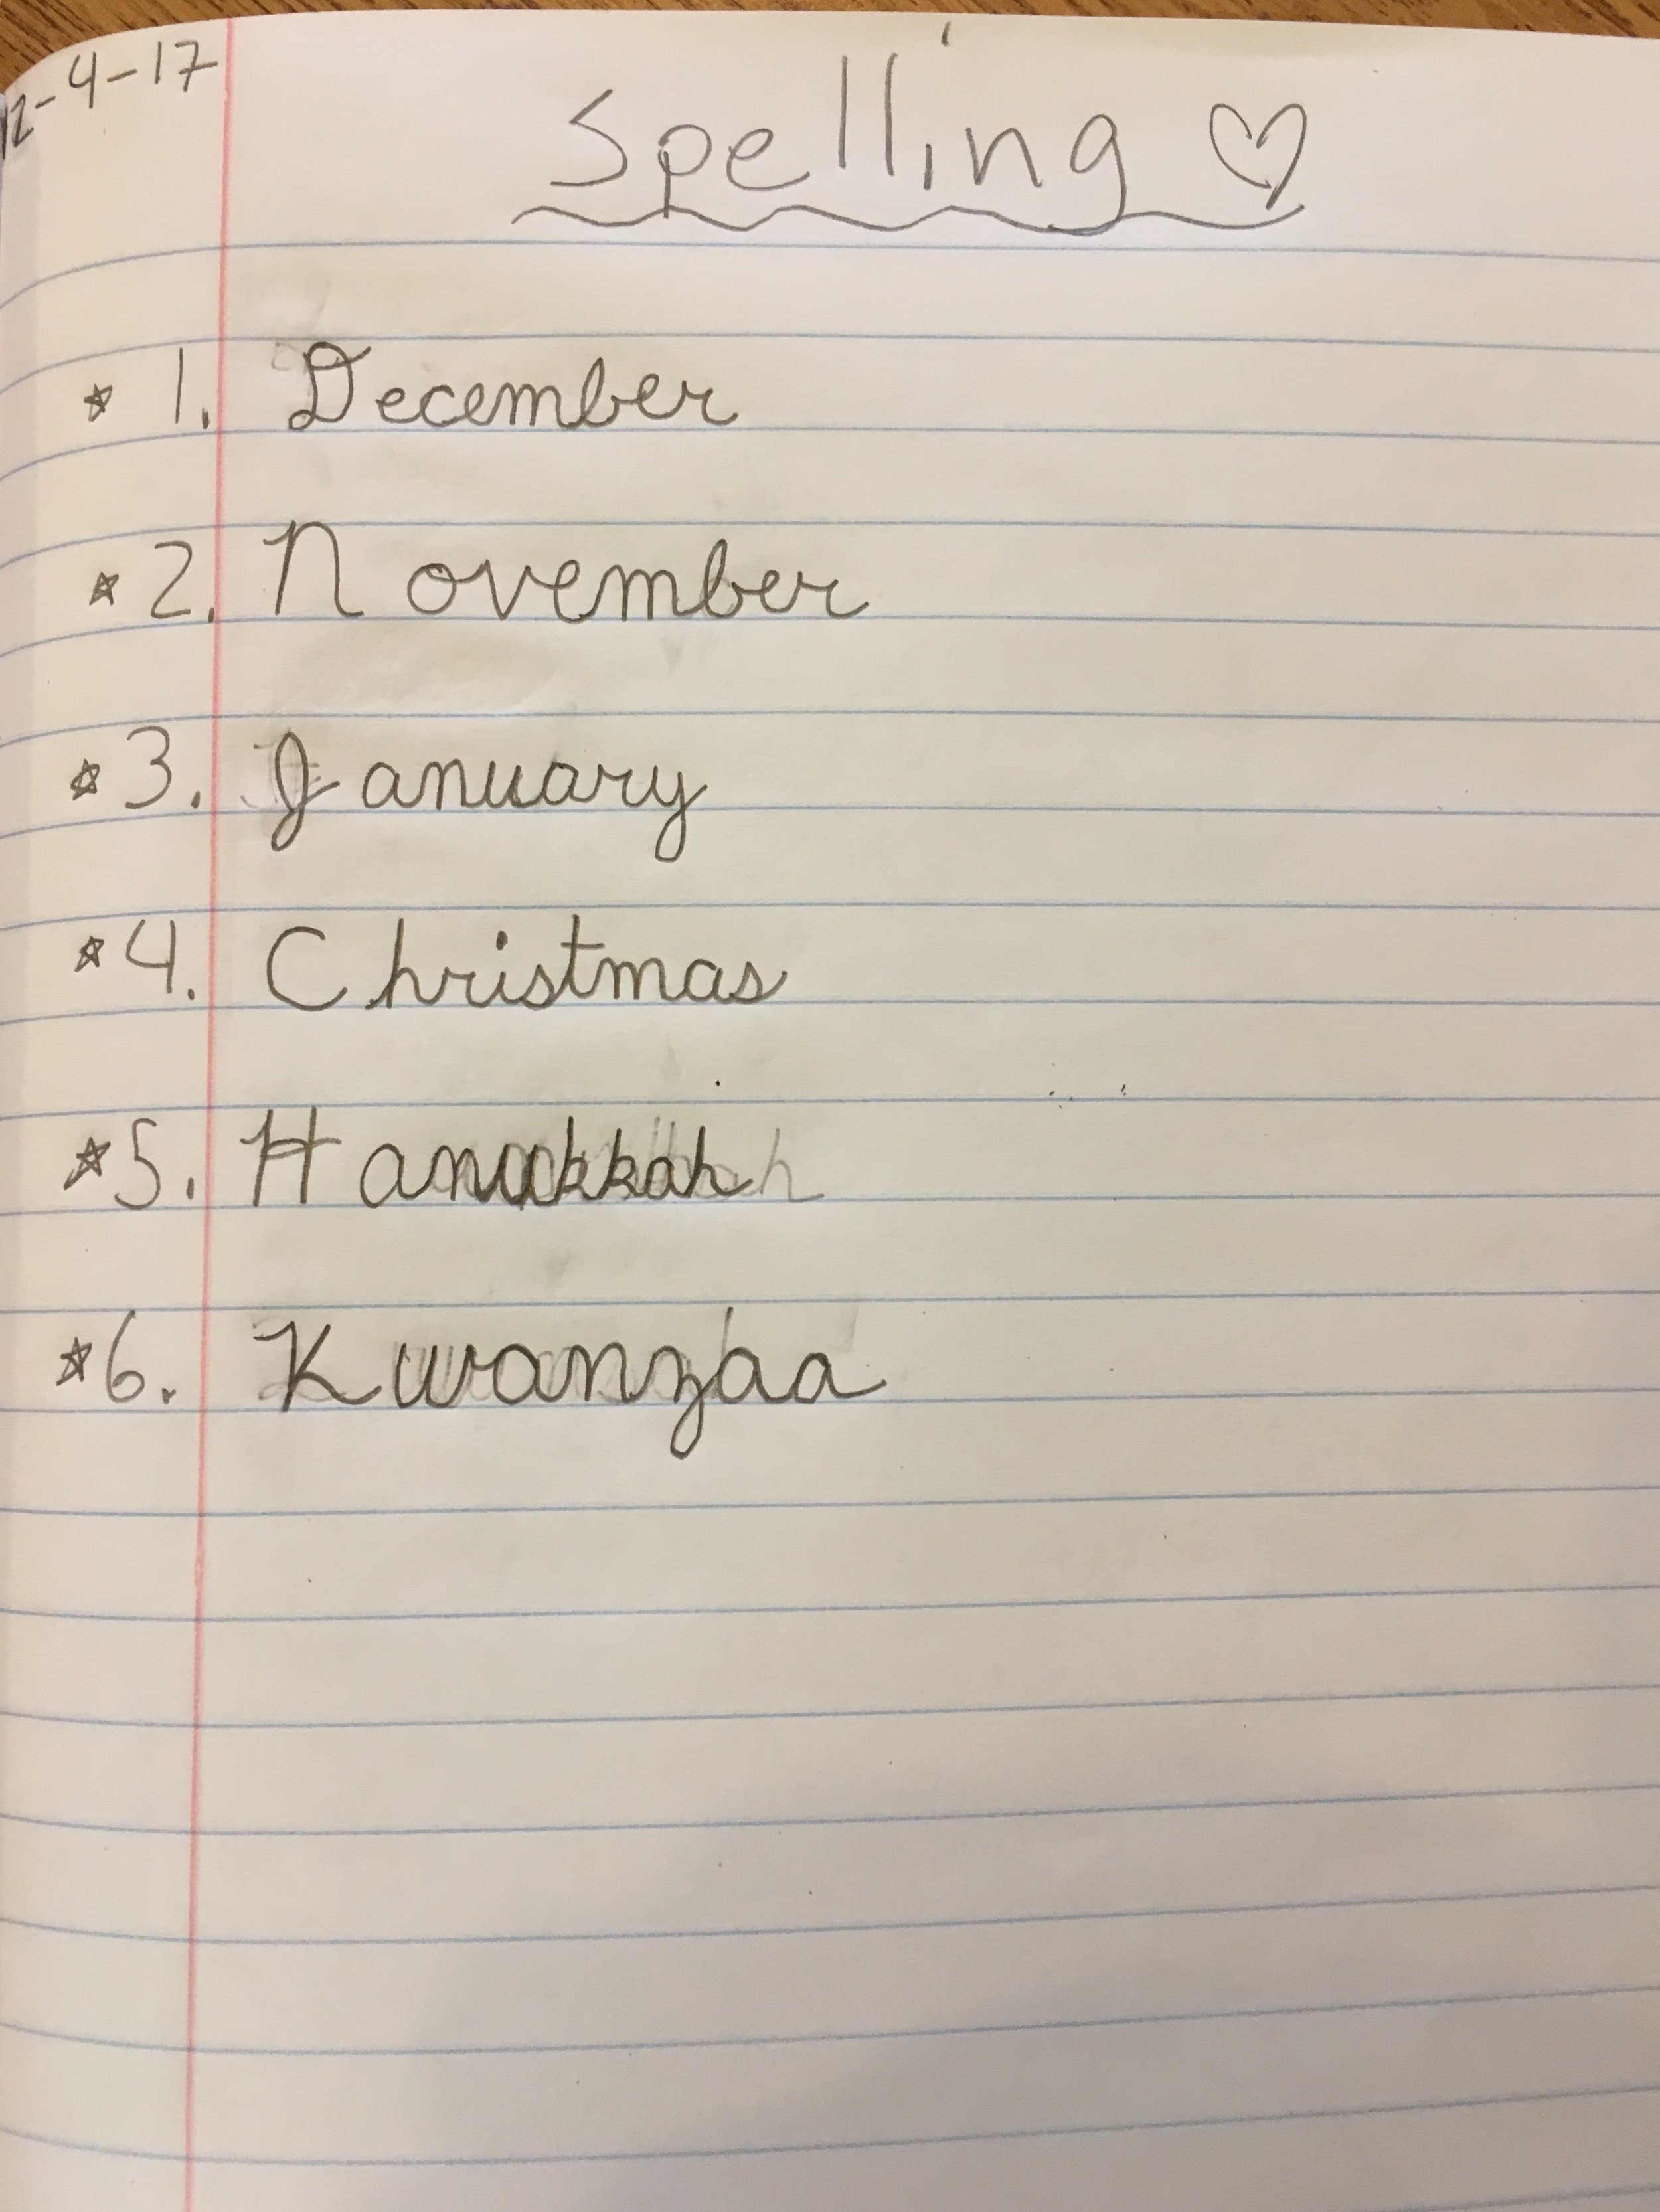 12-4-17
Spelling ♡
☆ 1. December
☆ 2. November
☆ 3. January
☆ 4. Christmas
☆ 5. Hanukkah
☆ 6. Kwanzaa